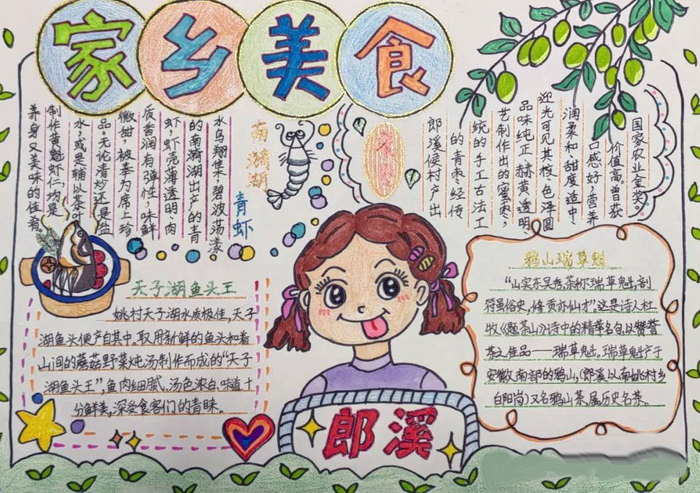 家乡美食
南漪湖
青虾
水鸟翔集，碧波荡漾
的南漪湖出产的青
虾，虾壳薄透明，肉
质香润有弹性，味鲜
微甜，被奉为席上珍
品。无论清炒还是盐
水，或是辅以茶叶
制作黄魁虾仁，均是
养身又美味的佳肴。
郎溪侯村产出
的青枣，经传
统的手工古法工
艺制作出的蜜枣，
品味纯正，赫黄透明
迎光可见其核，色泽圆
润柔和，甜度适中，
口感好，营养
价值高，曾获
国家农业金奖。
天子湖鱼头王
姚村天子湖水质极佳，天子
湖鱼头便产自其中，取用新鲜的鱼头和着
山间的蘑菇野菜炖汤制作而成的“天子
湖鱼头王”，鱼肉细腻，汤色浓白，味道十
分鲜美，深受食客们的青睐。
鸦山瑞草魁
“山实东吴秀，茶称瑞草魁，剖
符虽俗史，修贡亦仙才”，这是诗人杜
牧《题茶山》诗中的精章名句以赞誉
茶之佳品——瑞草魁。瑞草魁产于
安徽南部的鸦山，（郎溪以南姚村乡
白阳岗）又名鸦山茶，属历史名茶。
郎溪